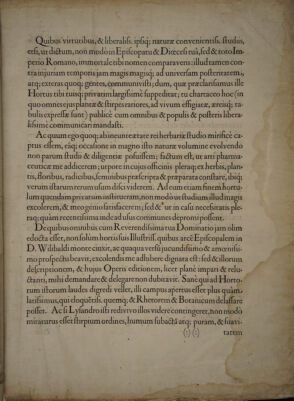 Quibus virtutibus, & liberalissi. ipsiq; naturæ convenientiss. studiis,
etsi, ut dictum, non modo in Episcopatu & Diœcesi tuâ, sed & toto Im-
perio Romano, immortale tibi nomen comparaveris: illud tamen con-
tra injuriam temporis jam magis magisq; ad universam posteritatem,
atq; exteras quoq; gentes, communivisti; dum, quæ præclarissimus ille
Hortus tibi tuisq; privatim largissimè suppeditat, tu chartaceo hoc (in
quo omnes ejus plantæ & stirpes rariores, ad vivum effigiatæ, æreisq; ta-
bulis expressæ sunt) publicè cum omnibus & populis & posteris libera-
lissimè communicari mandasti.
Ac quum ego quoq; ab ineunte ætate rei herbariæ studio mirificè ca-
ptus essem, eâq; occasione in magno isto naturæ volumine evolvendo
non parum studii & diligentiæ posuissem; factum est, ut arti pharma-
ceuticæ me addicerem; utpote in cujus officinis pleraq; ex herbis, plan-
tis, floribus, radicibus, seminibus præscripta & præparata constare, ibiq;
verum istarum rerum usum disci viderem. Ad eum etiam finem hortu-
lum quendam privatum institueram, non modo ut studium illud magis
excolerem, & me o genio satisfacerem; sed & ut in casu necessitatis ple-
raq; quàm recentissima inde ad usus communes depromi possent.
De quibus omnibus cum Reverendissima tua Dominatio jam olim
edocta esset, non solum hortus suus Illustriss. quibus arcè Episcopalem in
D. Wilibaldi monte cinxit, ac quaqua versùs jucundissimo & amœnissi-
mo prospectu beavit, excolendi me adhibere dignata est: sed & illorum
descriptionem, & hujus Operis editionem, licet planè impari & relu-
ctanti, mihi demandare & delegare non dubitavit. Sanè qui ad Horto-
rum istorum laudes digredi vellet, illi campus apertus esset plus quàm
latissimus, qui eloquētiss. quemq; & Rhetorem & Botanicum delassare
posset. Ac si Lysandro isti redivivo illos videre contingeret, non modò
miraturus esset stirpium ordines, humum subactā atq; puram, & suavi-
tatem